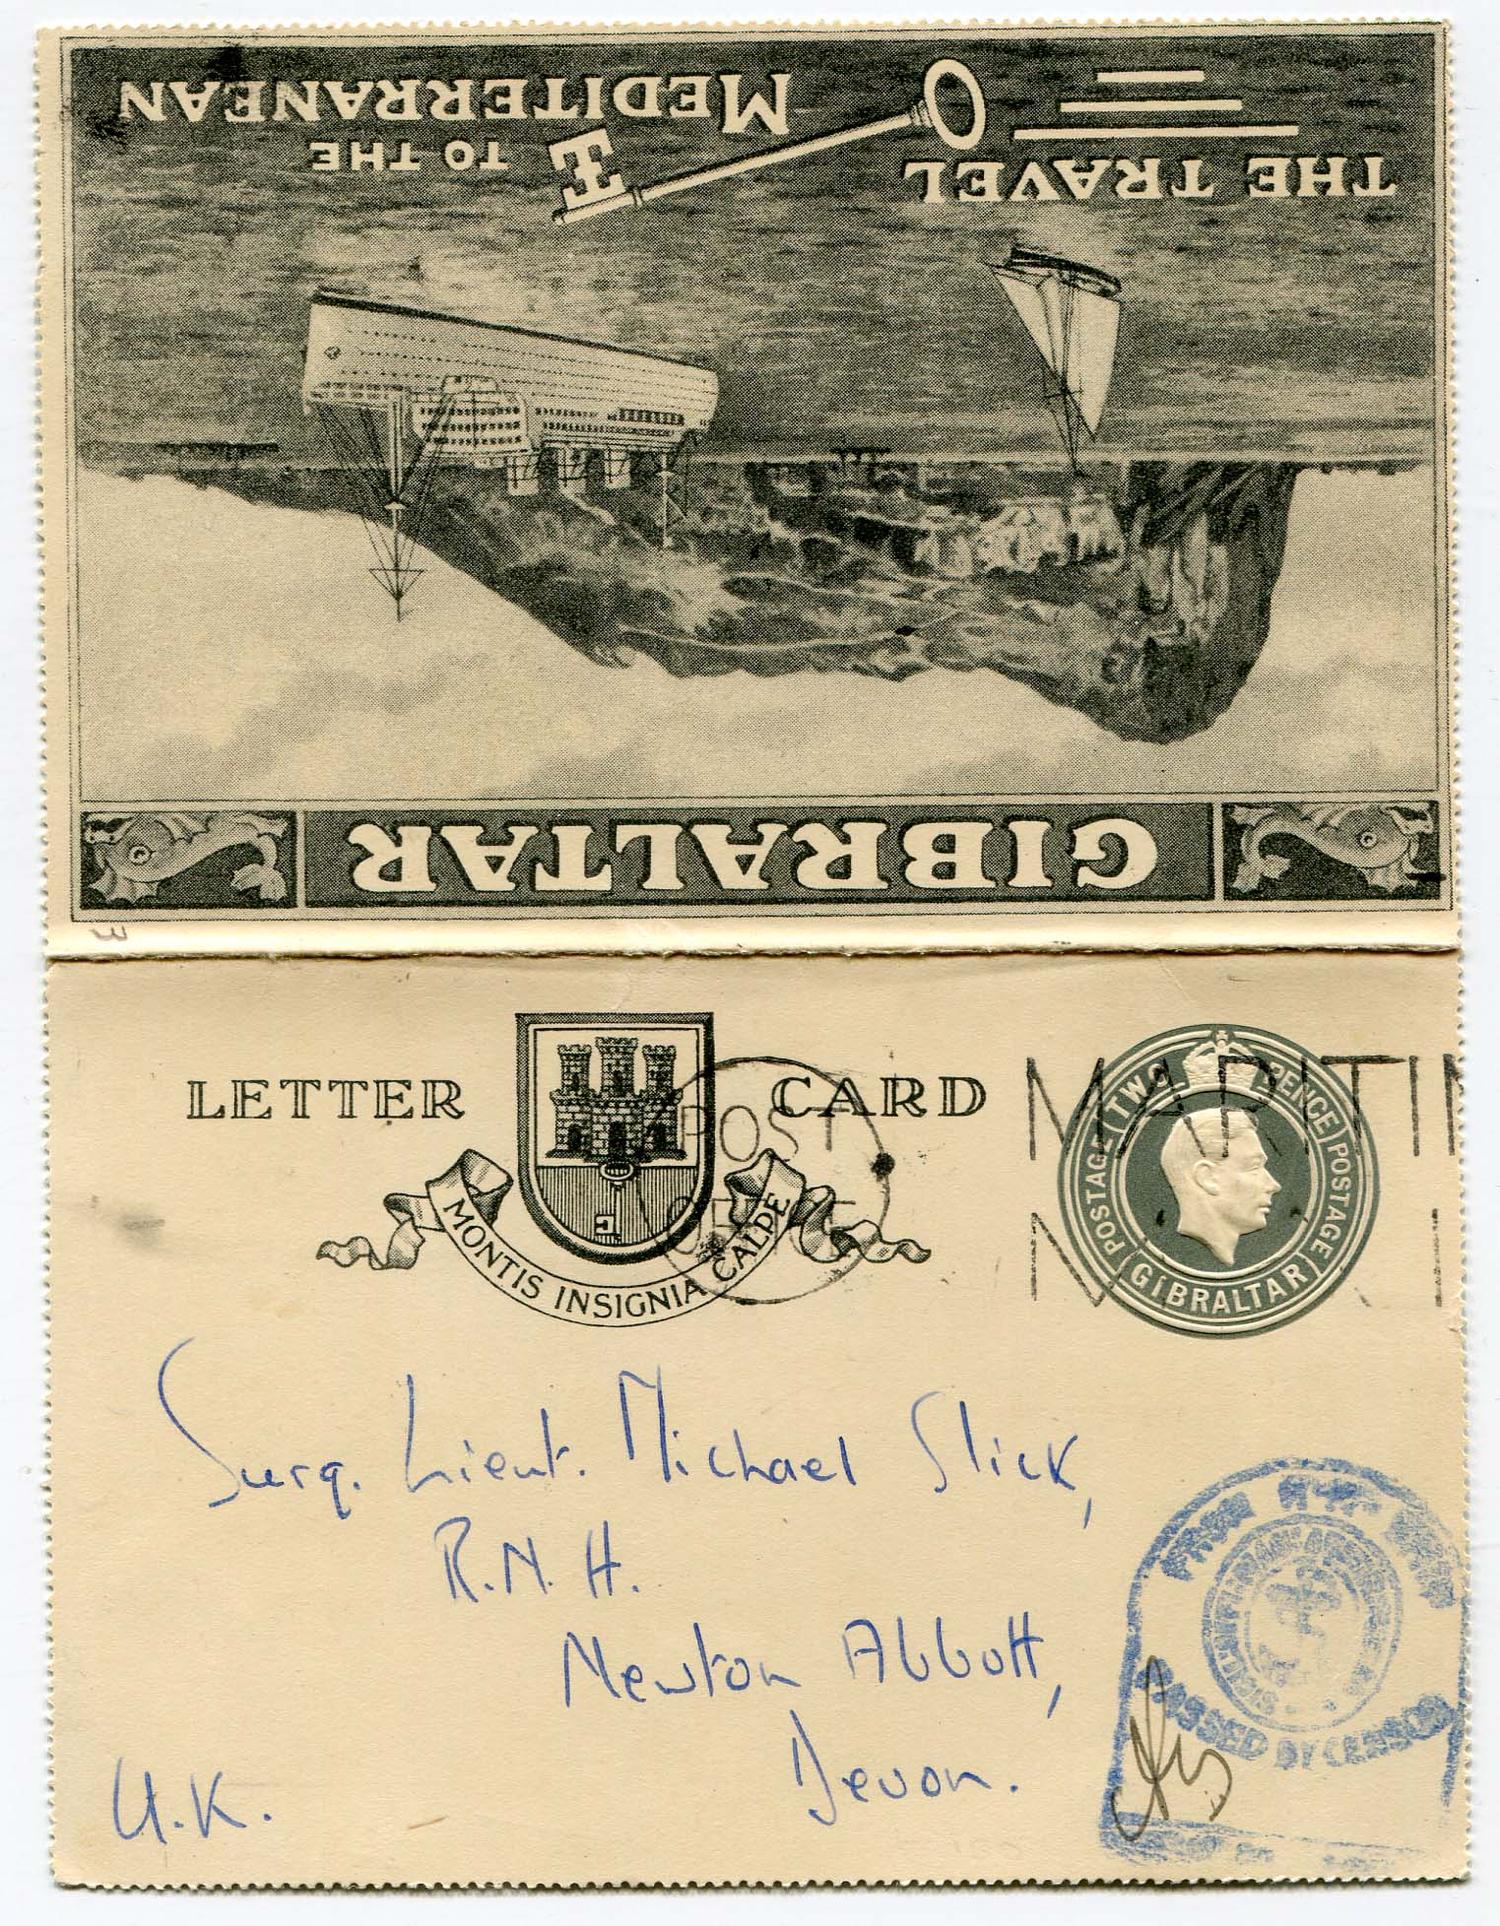 GIBRALTAR
THE TRAVEL
TO THE
MEDITERRANEAN
LETTER CARD
MONTIS INSIGNIA CALPE
POSTAGE TWO PENCE POSTAGE
GIBRALTAR
POST
OFFICE
MARITI
Surg. Lieut. Michael Slick,
R.N.H.
Newton Abbott,
Devon.
U.K.
FROM
PASSED BY CENSOR